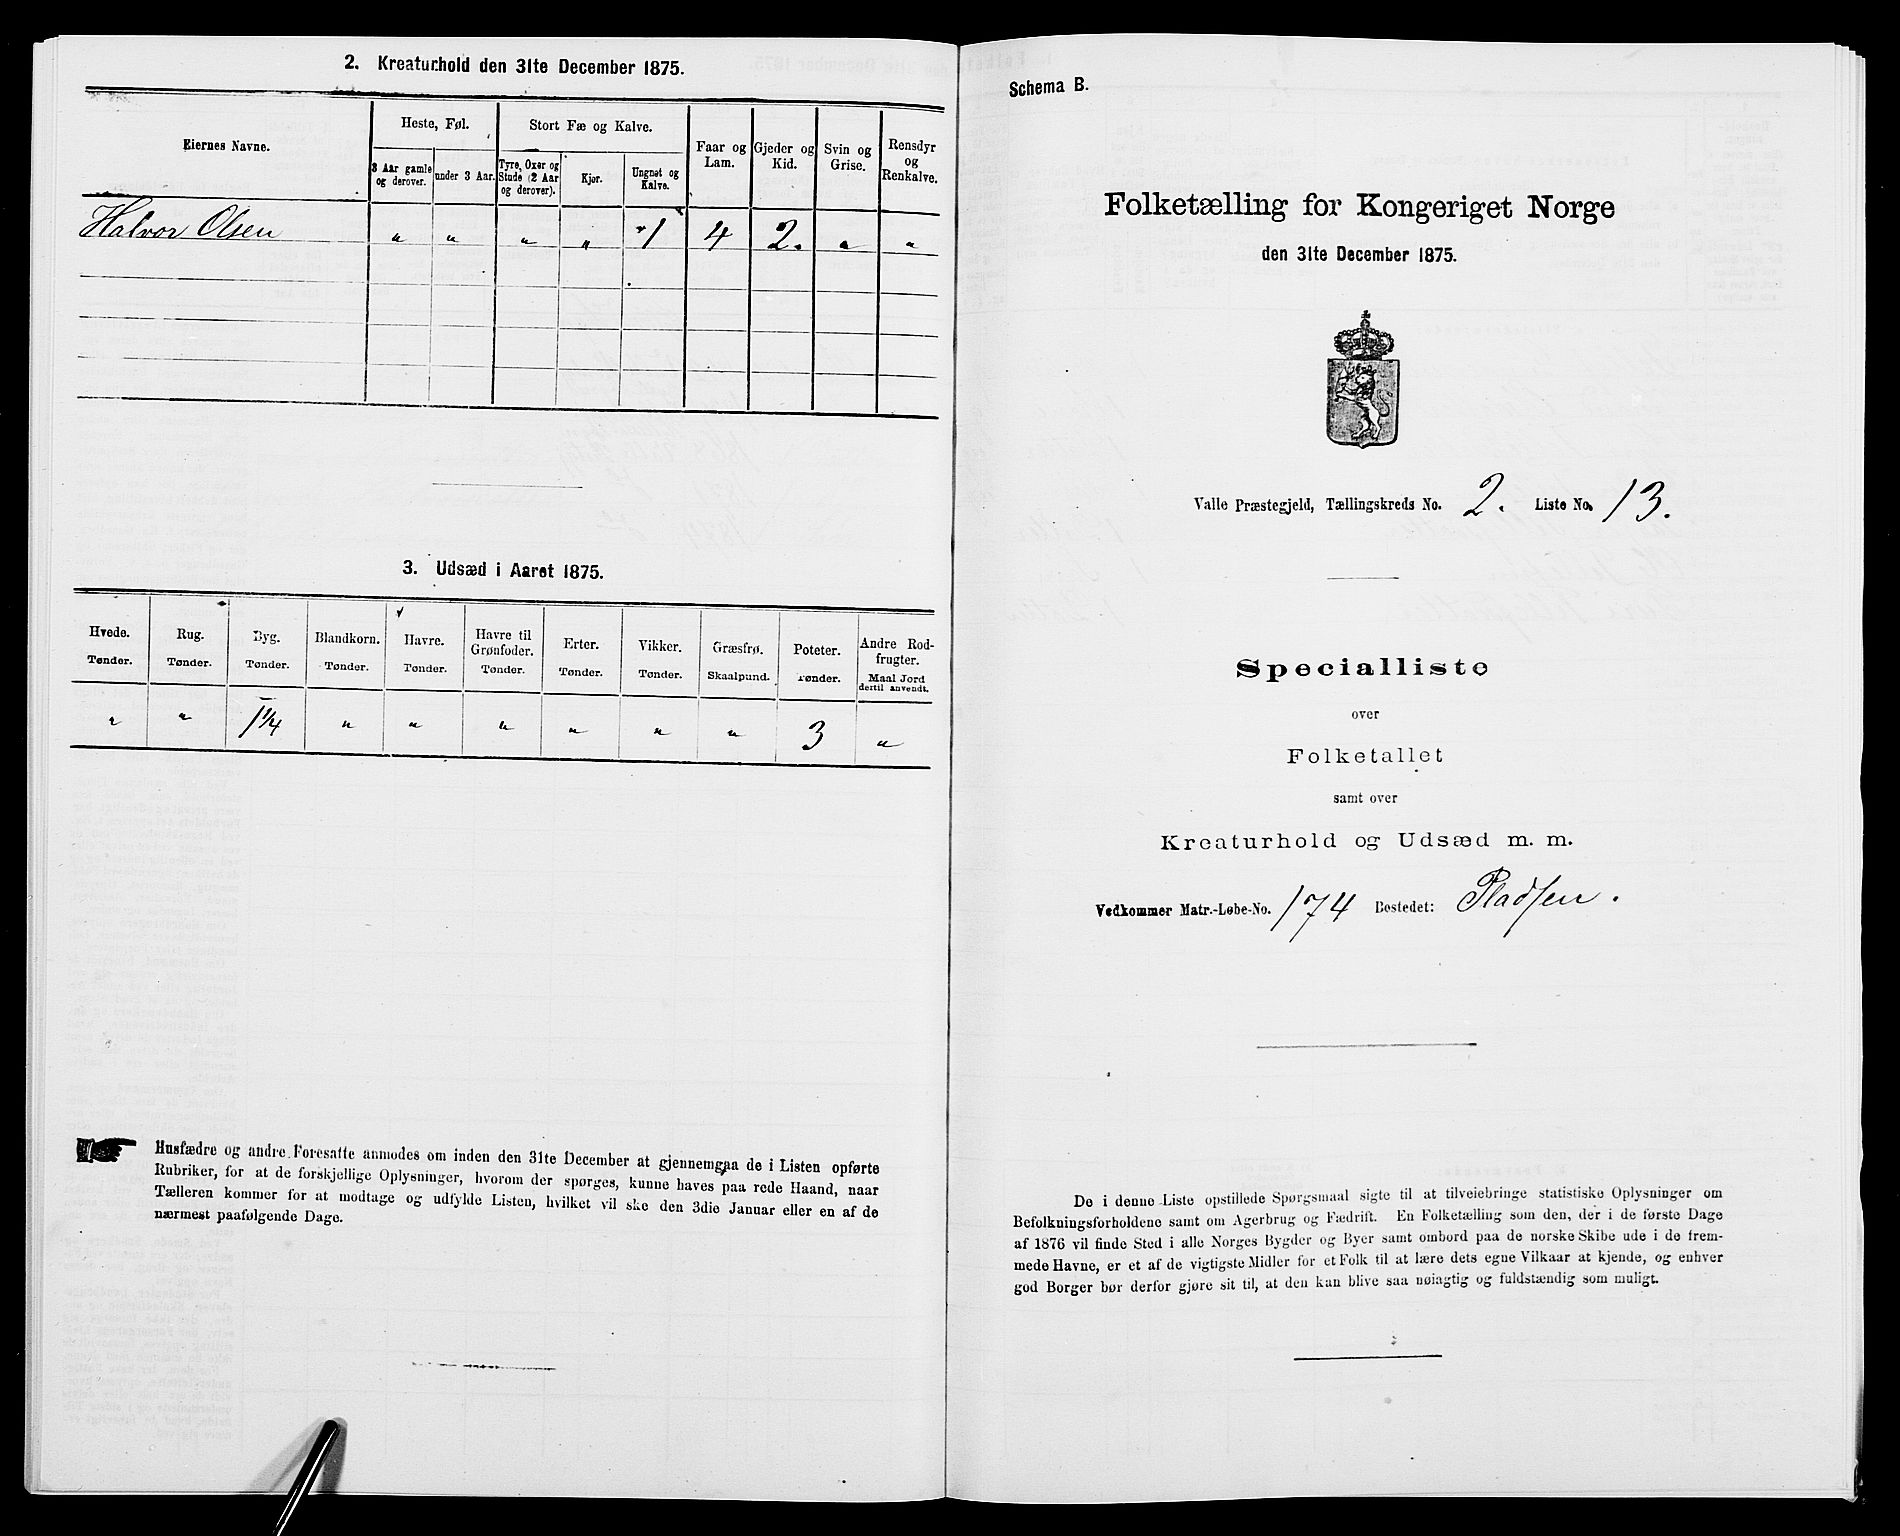 2. Kreaturhold den 31te December 1875.
Eiernes Navne.
Heste, Føl.
Stort Fæ og Kalve.
Faar og Lam.
Gjeder og Kid.
Svin og Grise.
Rensdyr og Renkalve.
3 Aar gamle og derover.
under 3 Aar.
Tyre, Oxer og Stude (2 Aar og derover).
Kjør.
Ungnøt og Kalve.
Halvor Olsen " " " " 1 4 2. " "
3. Udsæd i Aaret 1875.
Hvede. Rug. Byg. Blandkorn. Havre. Havre til Grønfoder. Erter. Vikker. Græsfrø. Poteter. Andre Rodfrugter.
Tønder. Tønder. Tønder. Tønder. Tønder. Tønder. Tønder. Tønder. Skaalpund. Tønder. Maal Jord dertil anvendt.
" " 1 1/4 " " " " " " 3 "
Husfædre og andre Foresatte anmodes om inden den 31te December at gjennemgaa de i Listen opførte
Rubriker, for at de forskjellige Oplysninger, hvorom der spørges, kunne haves paa rede Haand, naar
Tælleren kommer for at modtage og udfylde Listen, hvilket vil ske den 3die Januar eller en af de
nærmest paafølgende Dage.
Schema B.
Folketælling for Kongeriget Norge
den 31te December 1875.
Valle Præstegjeld, Tællingskreds No. 2. Liste No. 13.
Specialliste
over
Folketallet
samt over
Kreaturhold og Udsæd m. m.
Vedkommer Matr.-Løbe-No. 174 Bostedet: Pladsen.
De i denne Liste opstillede Spørgsmaal sigte til at tilveiebringe statistiske Oplysninger om
Befolkningsforholdene samt om Agerbrug og Fædrift. En Folketælling som den, der i de første Dage
af 1876 vil finde Sted i alle Norges Bygder og Byer samt ombord paa de norske Skibe ude i de frem-
mede Havne, er et af de vigtigste Midler for et Folk til at lære dets egne Vilkaar at kjende, og enhver
god Borger bør derfor gjøre sit til, at den kan blive saa nøiagtig og fuldstændig som muligt.